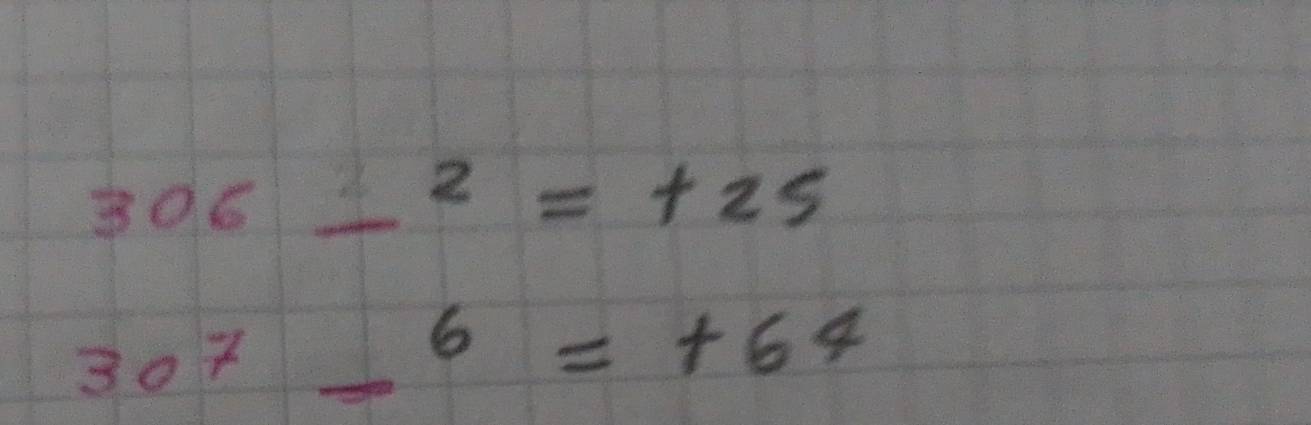 306 _ ² = +25
307 _ ⁶ = +64